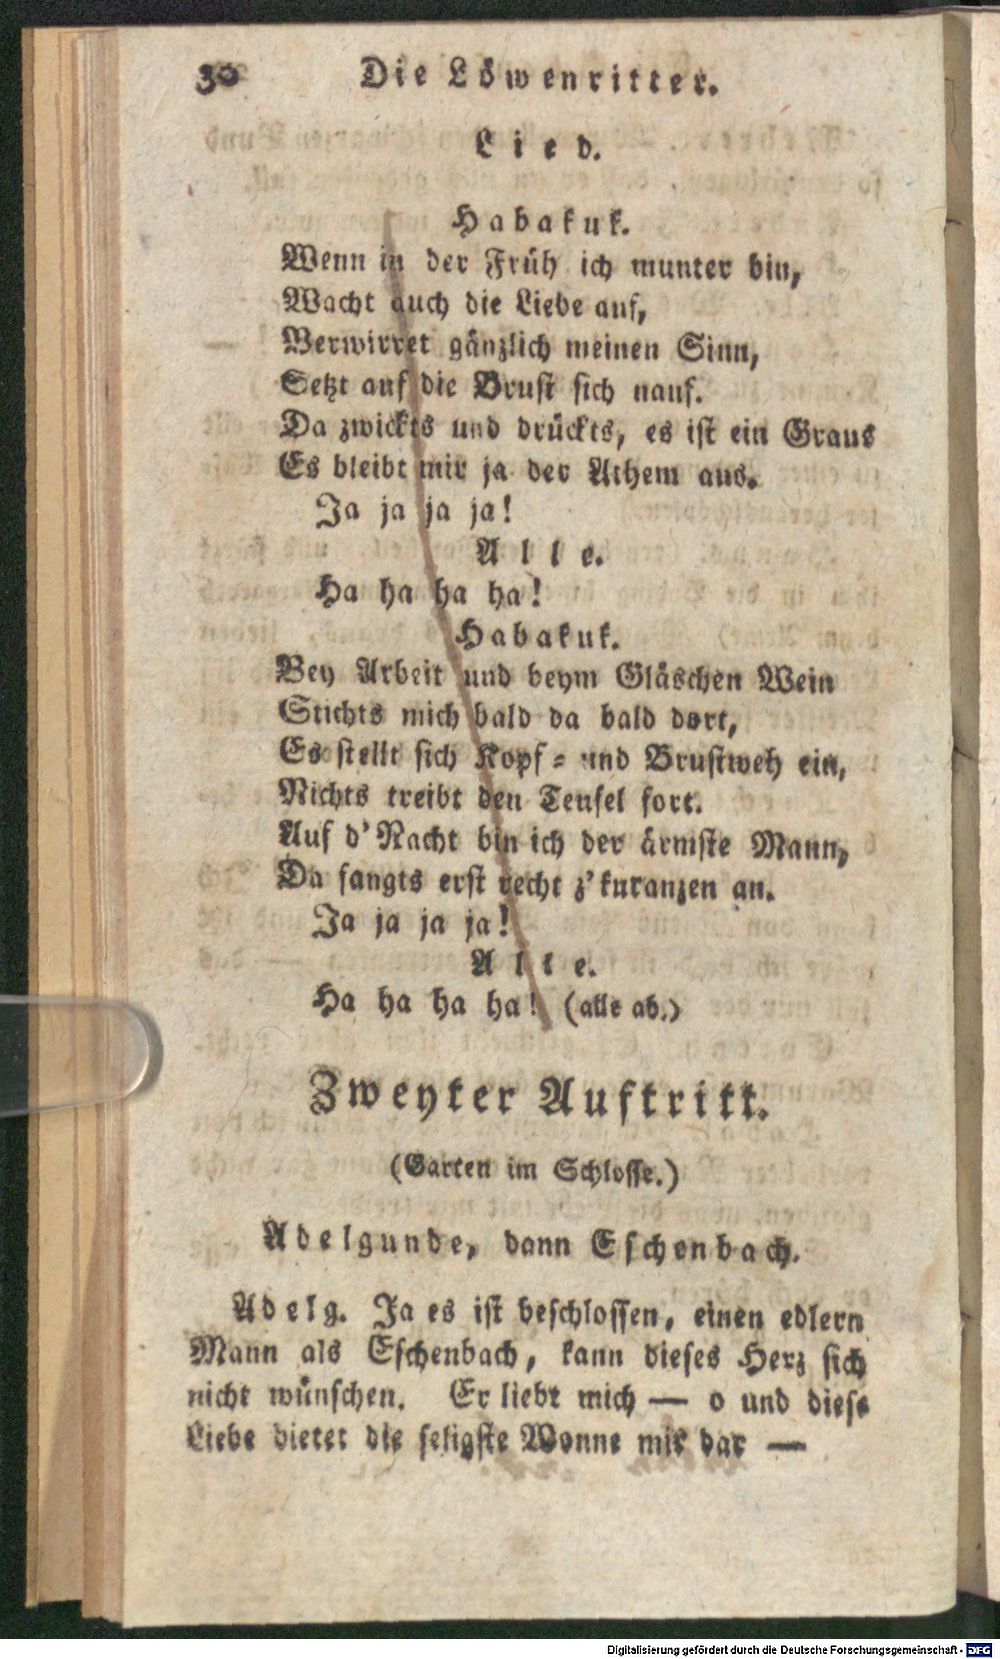 30 Die Löwenritter.
Lied.
Habakuk.
Wenn in der Früh ich munter bin,
Wacht auch die Liebe auf,
Verwirret gänzlich meinen Sinn,
Setzt auf die Brust sich nauf.
Da zwickts und drückts, es ist ein Graus
Es bleibt mir ja der Athem aus.
Ja ja ja ja!
Alle.
Ha ha ha ha!
Habakuk.
Bey Arbeit und beym Gläschen Wein
Stichts mich bald da bald dort,
Es stellt sich Kopf- und Brustweh ein,
Nichts treibt den Teufel fort.
Auf d'Nacht bin ich der ärmste Mann,
Da fangts erst recht z'kuranzen an.
Ja ja ja ja!
Alle.
Ha ha ha ha! (alle ab.)
Zweyter Auftritt.
(Garten im Schlosse.)
Adelgunde, dann Eschenbach.
Adelg. Ja es ist beschlossen, einen edlern
Mann als Eschenbach, kann dieses Herz sich
nicht wünschen. Er liebt mich — o und diese
Liebe bietet die seligste Wonne mir dar —
Digitalisierung gefördert durch die Deutsche Forschungsgemeinschaft - DFG